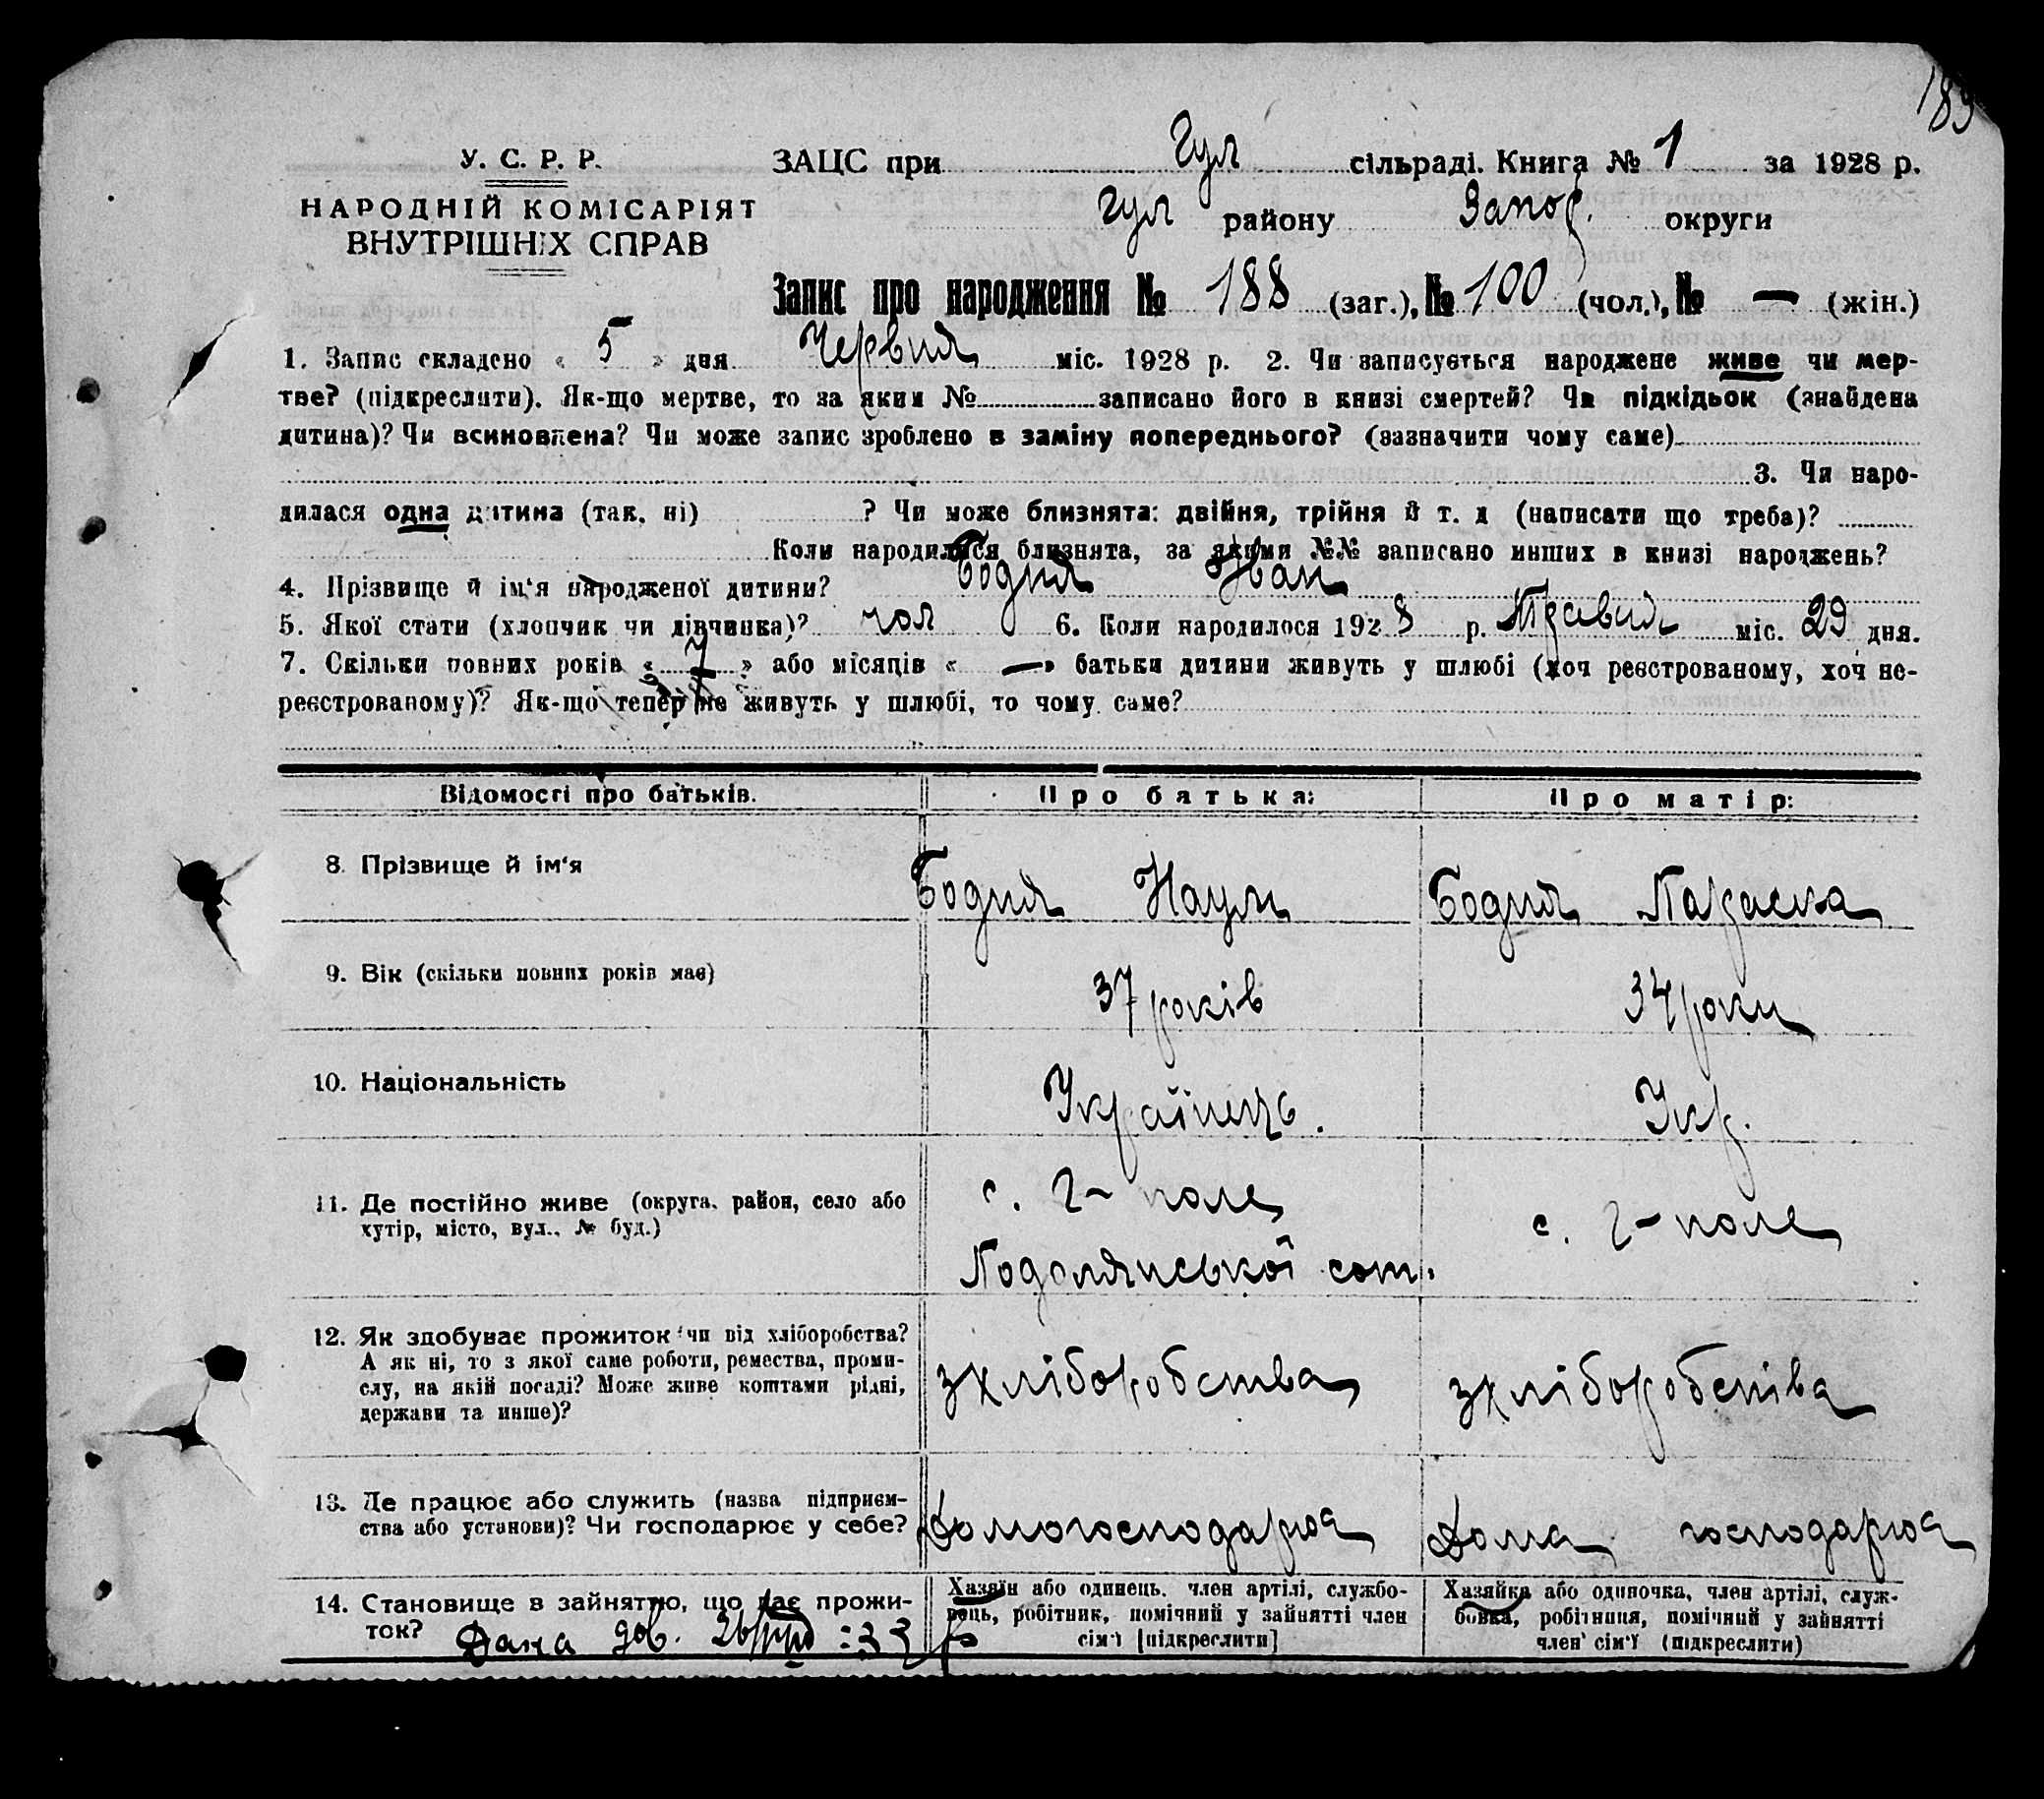 183
У. С. Р. Р.
НАРОДНІЙ КОМІСАРІЯТ
ВНУТРІШНІХ СПРАВ
ЗАЦС при Гул сільраді. Книга № 1 за 1928 р.
Гул району Запор. округи
Запис про народження № 188 (заг.), № 100 (чол.), № — (жін.)
1. Запис складено « 5 » дня Червня міс. 1928 р. 2. Чи записується народжене живе чи мер-
тве? (підкреслити). Як-що мертве, то за яким № записано його в книзі смертей? Чи підкідьок (знайдена
дитина)? Чи всиновлена? Чи може запис зроблено в заміну попереднього? (зазначити чому саме)
3. Чи наро-
дилася одна дитина (так, ні) ? Чи може близнята: двійня, трійня й т. д (написати що треба)?
Коли народилися близнята, за якими №№ записано инших в книзі народжень?
4. Прізвище й ім'я народженої дитини? Бодня Іван
5. Якої стати (хлопчик чи дівчинка)? чол 6. Коли народилося 1928 р. Травня міс. 29 дня.
7. Скільки повних років « 7 » або місяців « — » батьки дитини живуть у шлюбі (хоч реєстрованому, хоч не-
реєстрованому)? Як-що тепер не живуть у шлюбі, то чому саме?
Відомості про батьків. Про батька: Про матір:
8. Прізвище й ім'я Бодня Наум Бодня Параска
9. Вік (скільки повних років має) 37 років 34 роки
10. Національність Українець. Укр.
11. Де постійно живе (округа, район, село або
хутір, місто, вул., № буд.) с. Г-поле
Подолянської сот. с. Г-поле
12. Як здобуває прожиток чи від хліборобства?
А як ні, то з якої саме роботи, ремества, проми-
слу, на якій посаді? Може живе коштами рідні,
держави та инше)? з хліборобства з хліборобства
13. Де працює або служить (назва підприєм-
ства або установи)? Чи господарює у себе? Домогосподарює Дома господарює
14. Становище в зайняттю, що дає прожи-
ток? Дана дов.
Хазяїн або одинець, член артілі, службо-
вець, робітник, помічний у зайнятті член
сім'ї [підкреслити]
Хазяйка або одиночка, член артілі, служ-
бовка, робітниця, помічний у зайнятті
член сім'ї (підкреслити)